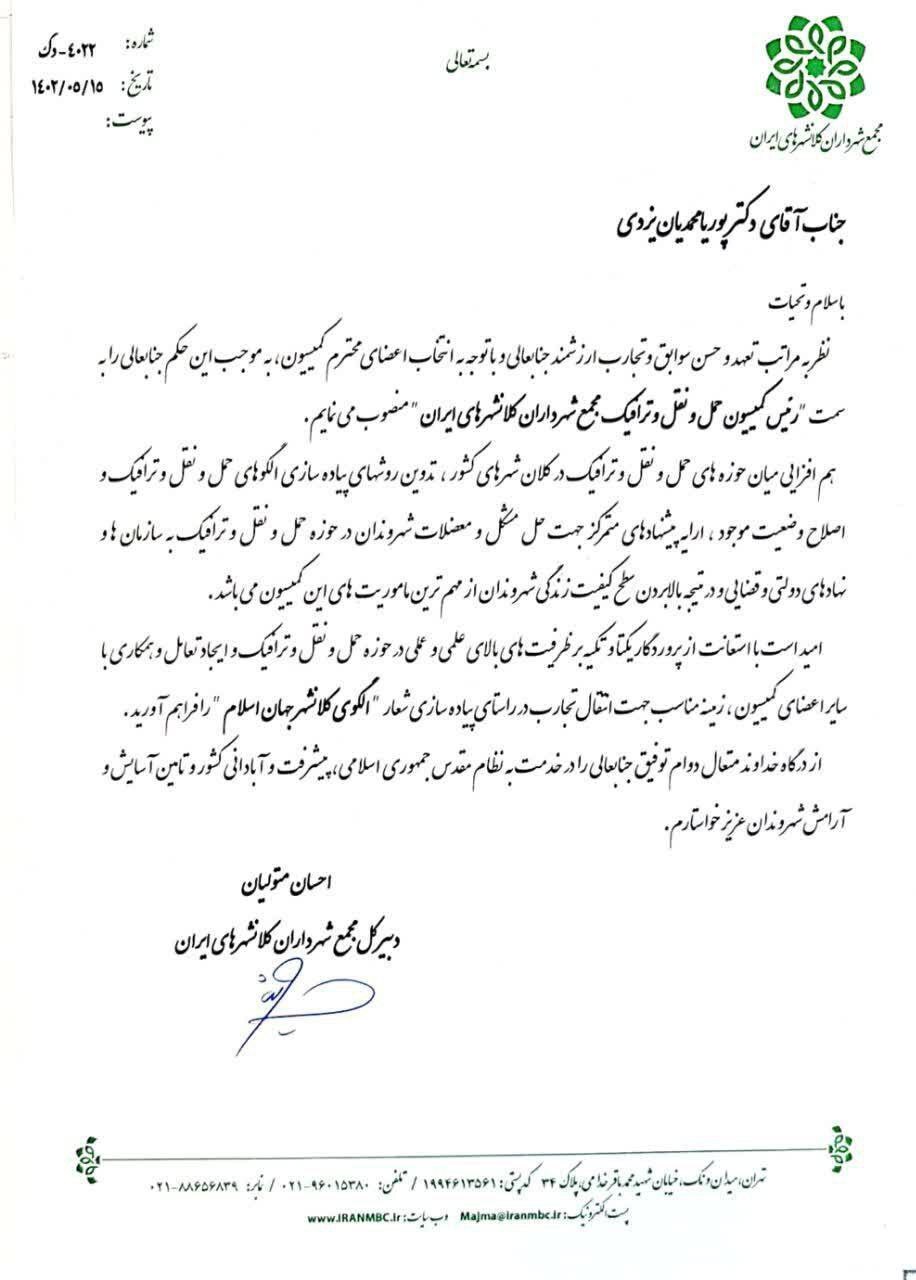 بسمه تعالی
شماره: ٤٠٢٢-دک
تاریخ: ١٤٠٢/٠٥/١٥
پیوست:
مجمع شهرداران کلانشهرهای ایران
جناب آقای دکتر پوریا محمدیان یزدی
با سلام و تحیات
نظر به مراتب تعهد و حسن سوابق و تجارب ارزشمند جنابعالی و با توجه به انتخاب اعضای محترم کمیسیون، به موجب این حکم جنابعالی را به
سمت "رئیس کمیسیون حمل و نقل و ترافیک مجمع شهرداران کلانشهرهای ایران" منصوب می نمایم.
هم افزایی میان حوزه های حمل و نقل و ترافیک در کلان شهرهای کشور، تدوین روشهای پیاده سازی الگوهای حمل و نقل و ترافیک و
اصلاح وضعیت موجود، ارایه پیشنهادهای متمرکز جهت حل مشکل و معضلات شهروندان در حوزه حمل و نقل و ترافیک به سازمان ها و
نهادهای دولتی و قضایی و در نتیجه بالا بردن سطح کیفیت زندگی شهروندان از مهم ترین ماموریت های این کمیسیون می باشد.
امید است با استعانت از پروردگار یکتا و تکیه بر ظرفیت های بالای علمی و عملی در حوزه حمل و نقل و ترافیک و ایجاد تعامل و همکاری با
سایر اعضای کمیسیون، زمینه مناسب جهت انتقال تجارب در راستای پیاده سازی شعار "الگوی کلانشهر جهان اسلام" را فراهم آورید.
از درگاه خداوند متعال دوام توفیق جنابعالی را در خدمت به نظام مقدس جمهوری اسلامی، پیشرفت و آبادانی کشور و تامین آسایش و
آرامش شهروندان عزیز خواستارم.
احسان متولیان
دبیر کل مجمع شهرداران کلانشهرهای ایران
تهران، میدان ونک، خیابان شهید محمد باقر خدامی، پلاک ٣٤ کد پستی: ١٩٩٤٦١٣٥٦١ / تلفن: ٠٢١-٩٦٠١٥٣٨٠ / نمابر: ٠٢١-٨٨٦٥٦٨٣٩
پست الکترونیک: Majma@iranmbc.ir وب سایت: www.IRANMBC.ir